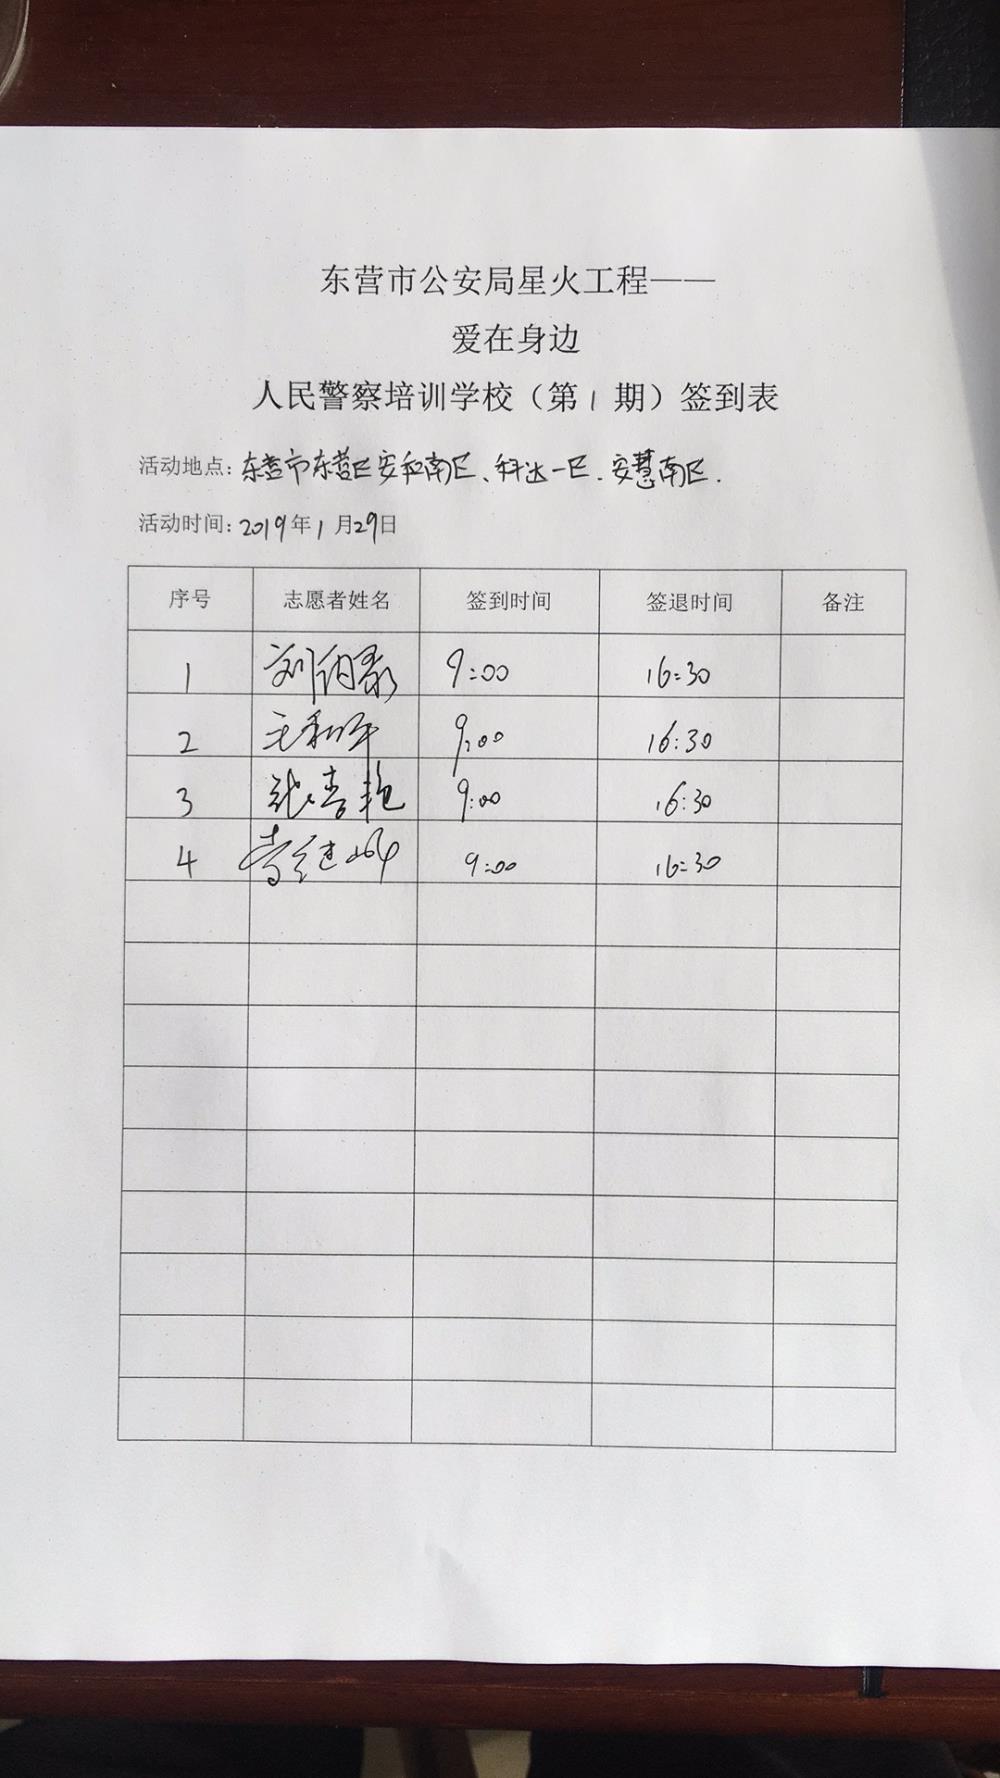 东营市公安局星火工程——
爱在身边
人民警察培训学校（第1期）签到表
活动地点：东营市东营区安和南区、科达一区.安慧南区.
活动时间：2019年1月29日
序号 志愿者姓名 签到时间 签退时间 备注
1 刘 9:00 16:30
2 王 9:00 16:30
3 张春艳 9:00 16:30
4 9:00 16:30